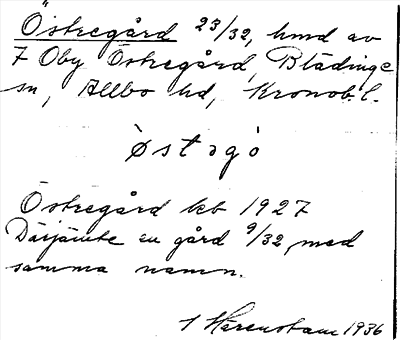 Östregård 23/32, hmd av
7 Oby Östregård, Blädinge
sn, Allbo hd, Kronob. l.
òst əgó
Östregård kb 1927
Därjämte en gård 9/32, med
samma namn.
1936